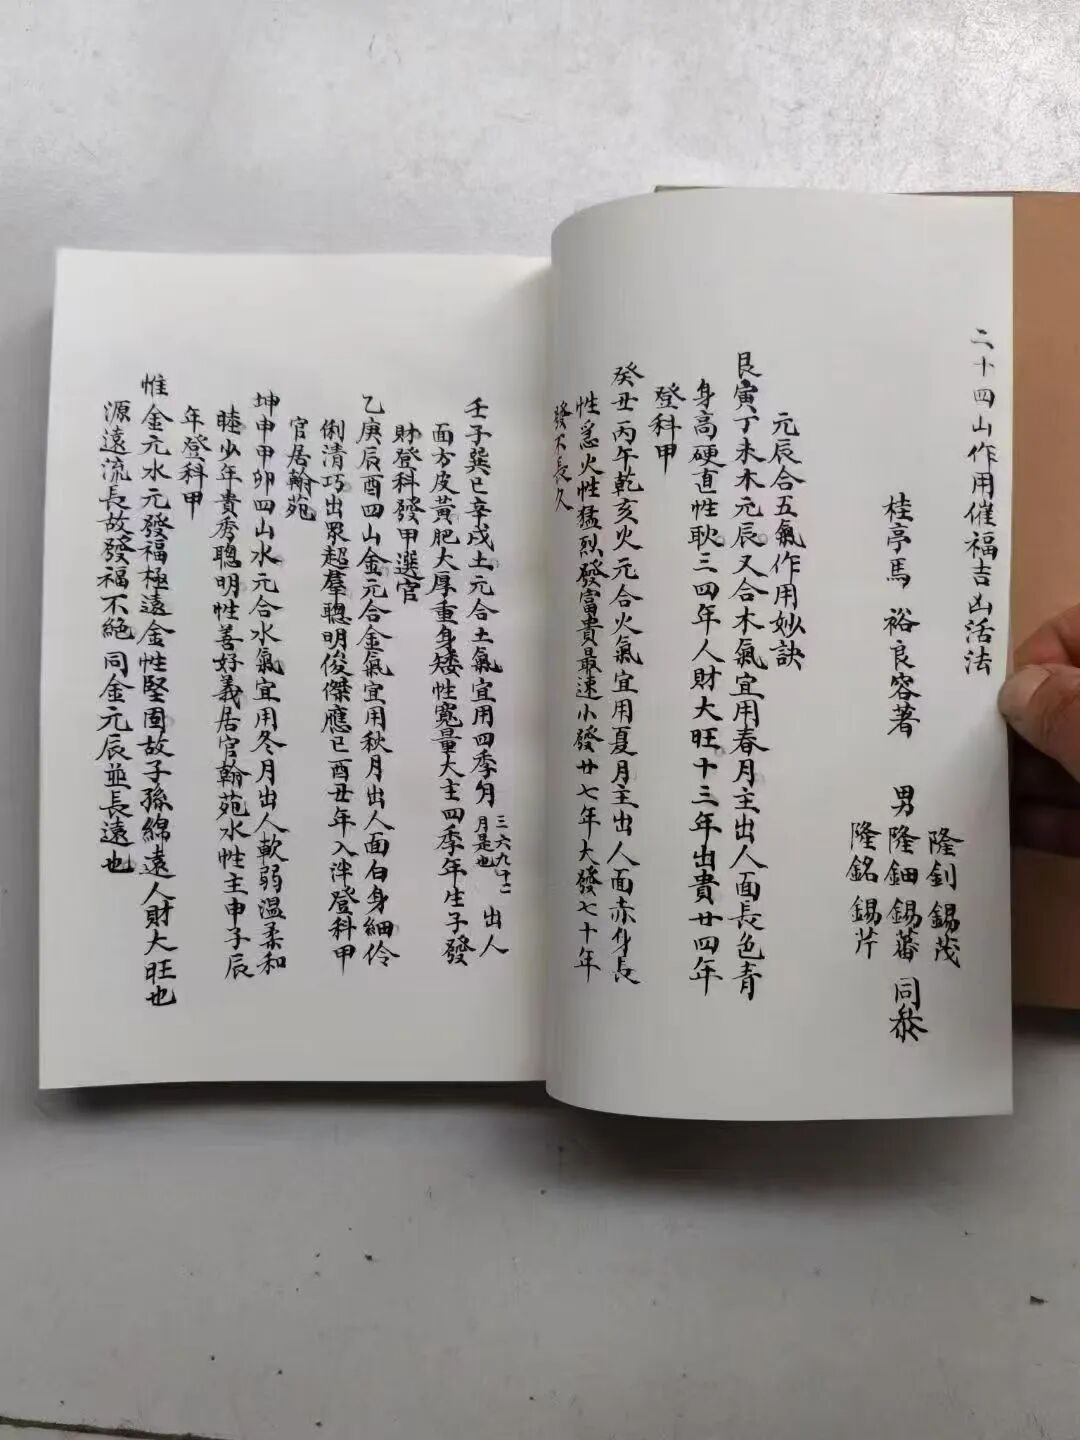 二十四山作用催福吉凶活法
桂亭馬 裕良容著 男隆鈿錫蕃同叅
隆釗錫茂
隆銘錫芹
元辰合五氣作用妙訣
艮寅丁未木元辰又合木氣宜用春月主出人面長色青
身高硬直性耿三四年人財大旺十三年出貴廿四年
登科甲
癸丑丙午乾亥火元合火氣宜用夏月主出人面赤身長
性急火性猛烈發富貴最速小發廿七年大發七十年
發不長久
壬子巽巳辛戌土元合土氣宜用四季月三六九十二月是也出人
面方皮黃肥大厚重身矮性寬量大主四季年生子發
財登科發甲選官
乙庚辰酉四山金元合金氣宜用秋月出人面白身細伶
俐清巧出眾超羣聰明俊傑應巳酉丑年入泮登科甲
官居翰苑
坤申甲卯四山水元合水氣宜用冬月出人軟弱温柔和
睦少年貴秀聰明性善好義居官翰苑水性主申子辰
年登科甲
惟金元水元發福極遠金性堅固故子孫綿遠人財大旺也
源遠流長故發福不絶同金元辰並長遠也